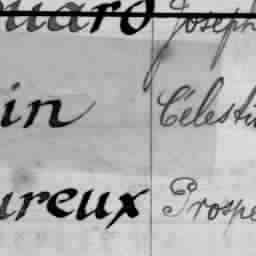 ouard Joseph
in Célestin
ureux Prospe